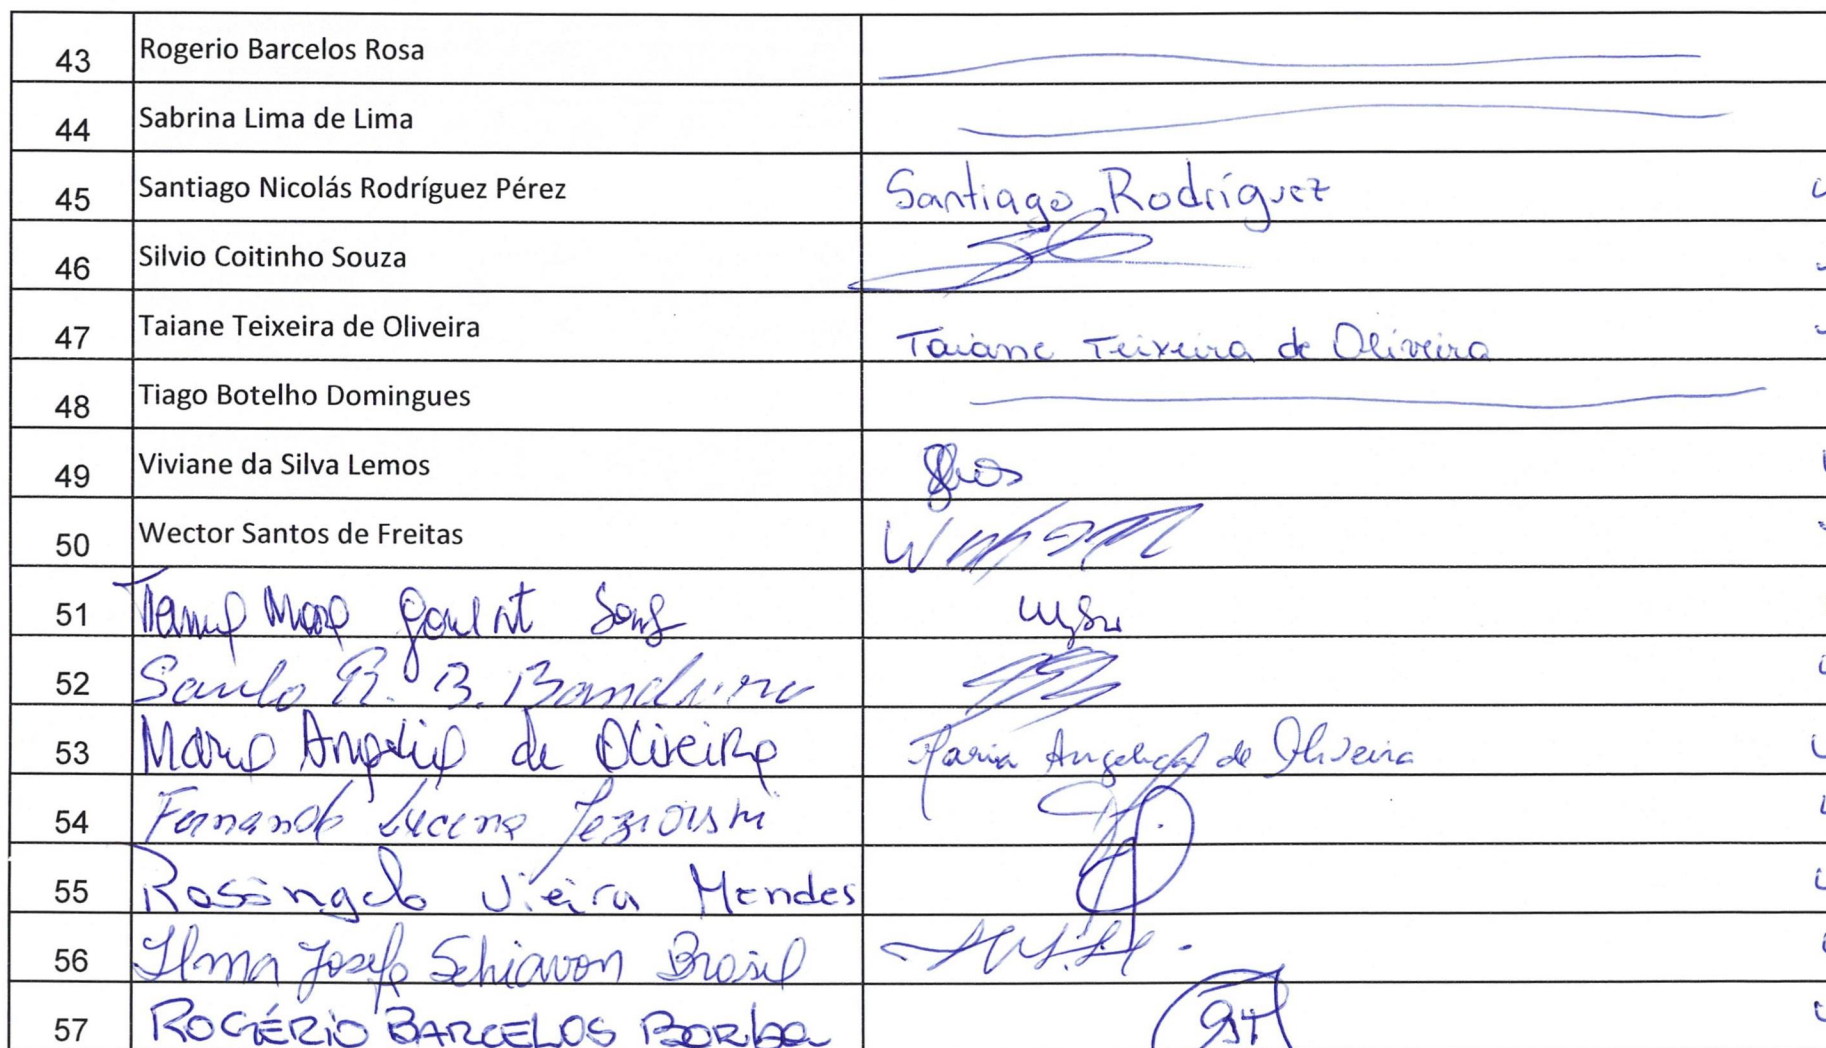 43 Rogerio Barcelos Rosa
44 Sabrina Lima de Lima
45 Santiago Nicolás Rodríguez Pérez Santiago Rodríguez
46 Silvio Coitinho Souza
47 Taiane Teixeira de Oliveira Taiane Teixeira de Oliveira
48 Tiago Botelho Domingues
49 Viviane da Silva Lemos
50 Wector Santos de Freitas
51
52 Saulo R. B. Bandeira
53 Maria Angelica de Oliveira Maria Angelica de Oliveira
54 Fernando Lucena
55 Rosangela Vieira Mendes
56 Ilma Josefa Schiavon Brasil
57 ROGÉRIO BARCELOS BORba